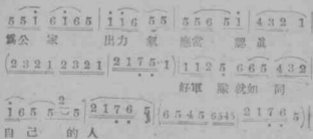 5 5 1 6 1 6 5 | 1 1 6 5 5 | 5 5 6 5 1 | 4 3 2 1
爲公家 出力氣 應當 認眞
(2 3 2 1 2 3 2 1 | 2 1 7 5 ·1) | 1 1 2 5 6 6 5 4 3 2
好軍隊就如同
1 6 5 5 2 5 | 2 1 7 6 5 | (6 5 4 5 6 5 4 5 2 1 7 6 5)
自己的人